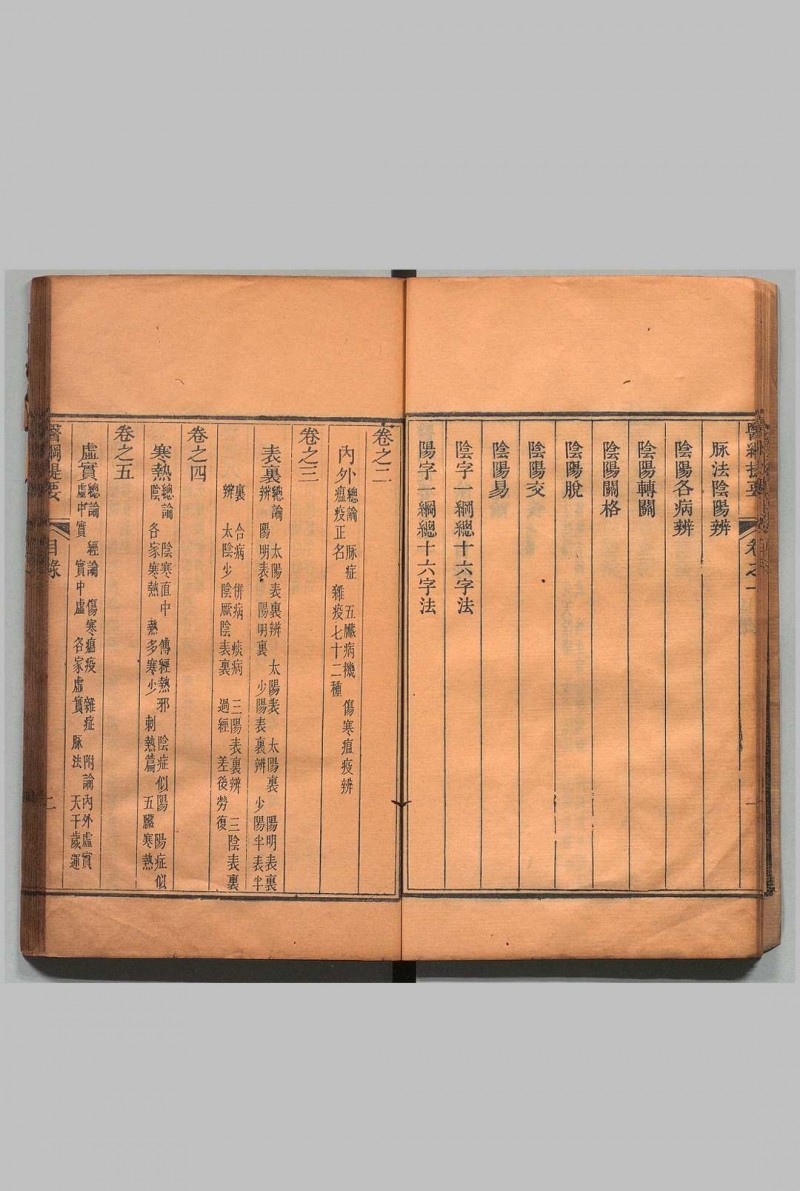 脉法陰陽辨
陰陽各病辨
陰陽轉關
陰陽關格
陰陽脫
陰陽交
陰陽易
陰字一綱總十六字法
陽字一綱總十六字法
卷之二
內外
總論 脉症 五臟病機 傷寒瘟疫辨
瘟疫正名 雜疫七十二種
卷之三
表裏
總論 太陽表裏辨 太陽表 太陽裏 陽明表裏
辨 陽明表 陽明裏 少陽表裏辨 少陽半表半
裏 合病 併病 痰病 三陽表裏辨 三陰表裏
辨 太陰少陰厥陰表裏 過經 差後勞復
卷之四
寒熱
總論 陰寒直中 傳經熱邪 陰症似陽 陽症似
陰 各家寒熱 熱多寒少 刺熱篇 五臟寒熱
卷之五
虛實
總論 經論 傷寒瘟疫 雜症 附論內外虛實
虛中實 實中虛 各家虛實 脉法 天干歲運
醫綱提要
目錄
二
醫綱提要
卷之一
一